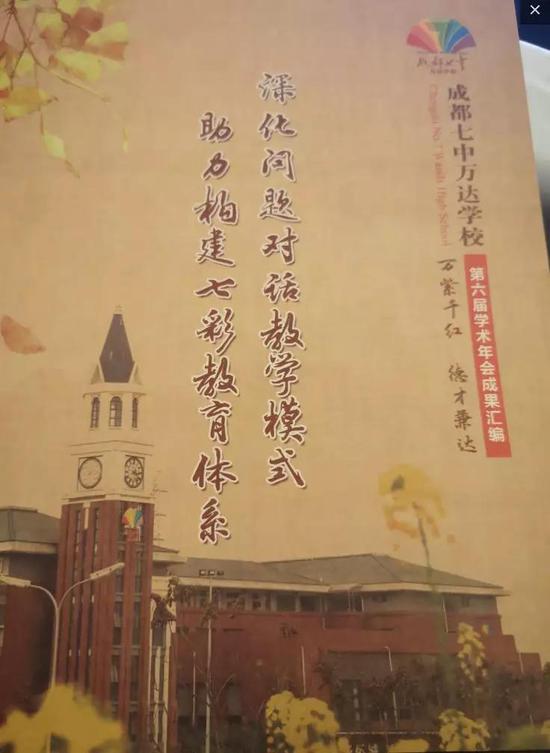 成都七中
万达学校
成都七中万达学校
Chengdu No.7 Wanda High School
万紫千红 德才兼达
第六届学术年会成果汇编
深化问题对话教学模式
助力构建七彩教育体系